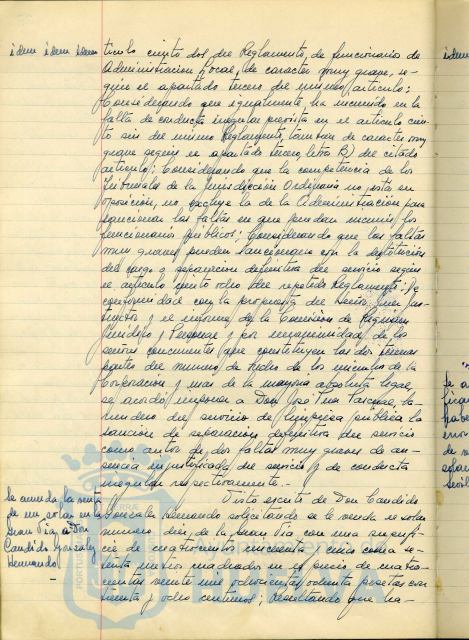 idem idem idem
tículo ciento dos del Reglamento de funcionarios de
Administración Local, de caracter muy grave, se-
gún el apartado tercero del mismo artículo;
Considerando que igualmente ha incurrido en la
falta de conducta irregular prevista en el artículo cien-
to seis del mismo Reglamento, también de caracter muy
grave según el apartado tercero, letra B) del citado
artículo; Considerando que la competencia de los
Tribunales de la Jurisdicción Ordinaria no está en
oposición, no excluye la de la Administración para
sancionar las faltas en que puedan incurrir los
funcionarios públicos; Considerando que las faltas
muy graves pueden sancionarse con la destitución
del cargo o separación definitiva del servicio según
el artículo ciento ocho del repetido Reglamento; De
conformidad con la propuesta del Señor Juez Ins-
tructor y el informe de la Comisión de Régimen
Jurídico y Personal y por unanimidad de los
señores concurrentes que constituyen las dos terceras
partes del número de hecho de los miembros de la
Corporación y mas de la mayoría absoluta legal,
se acordó imponer a Don José Pascual, ba-
rrendero del servicio de limpieza pública la
sanción de separación definitiva del servicio
como autor de dos faltas muy graves de au-
sencia injustificada del servicio y de conducta
irregular respectivamente.
Se acuerda la venta
de un solar en la
Gran Vía, a Don
Candido Gonzalez
Hernando
Visto escrito de Don Candido
Gonzalez Hernando solicitando se le venda el solar
número diez de la Gran Vía con una superfi-
cie de cuatrocientos cincuenta y cinco coma se-
tenta metros cuadrados en el precio de cuatro-
cientas veinte mil ochocientas ochenta pesetas con
setenta y ocho centimos; Resultando que ha-